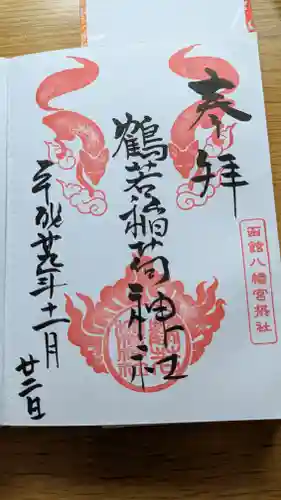 奉拝
函館八幡宮摂社
鶴若稲荷神社
平成廿九年十一月
廿二日